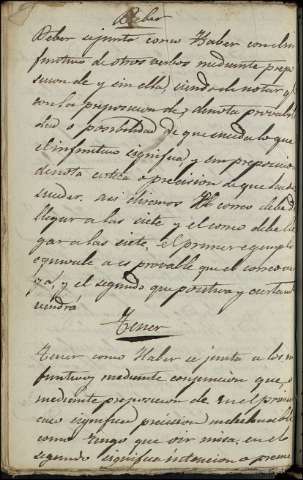 Deber
Deber se junta como Haber con el in
finitivo de otros verbos mediante prepo
sicion de y sin ella, siendo de notar q
con la preposicion de, denota provabili
dad o posibilidad de que suceda lo que
el infinitivo significa, y sin preposicion
denota certeza o precision de que ha de
suceder. asi decimos el correo debe de
llegar a las siete y el correo debe lle
gar a las siete, el primer egemplo
equivale a es provable que el correo ven
ga, y el segundo que positiva y ciertamte
vendrá
Tener
Tener como Haber se junta a los in
finitivos mediante conjuncion que, o
mediante preposicion de. En el primer
caso significa precision indispensable
como tengo que oir misa, en el
segundo significa intencion o prome